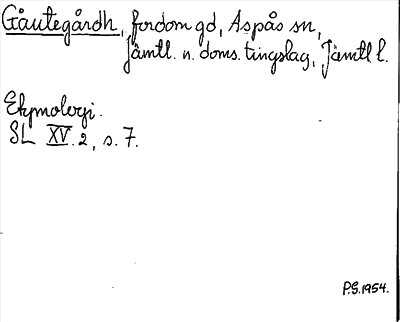 Gåutegårdh, fordom gd, Aspås sn,
Jämtl. n. doms. tingslag, Jämtl l.
Etymologi.
SL XV.2, s. 7.
P.G.1954.